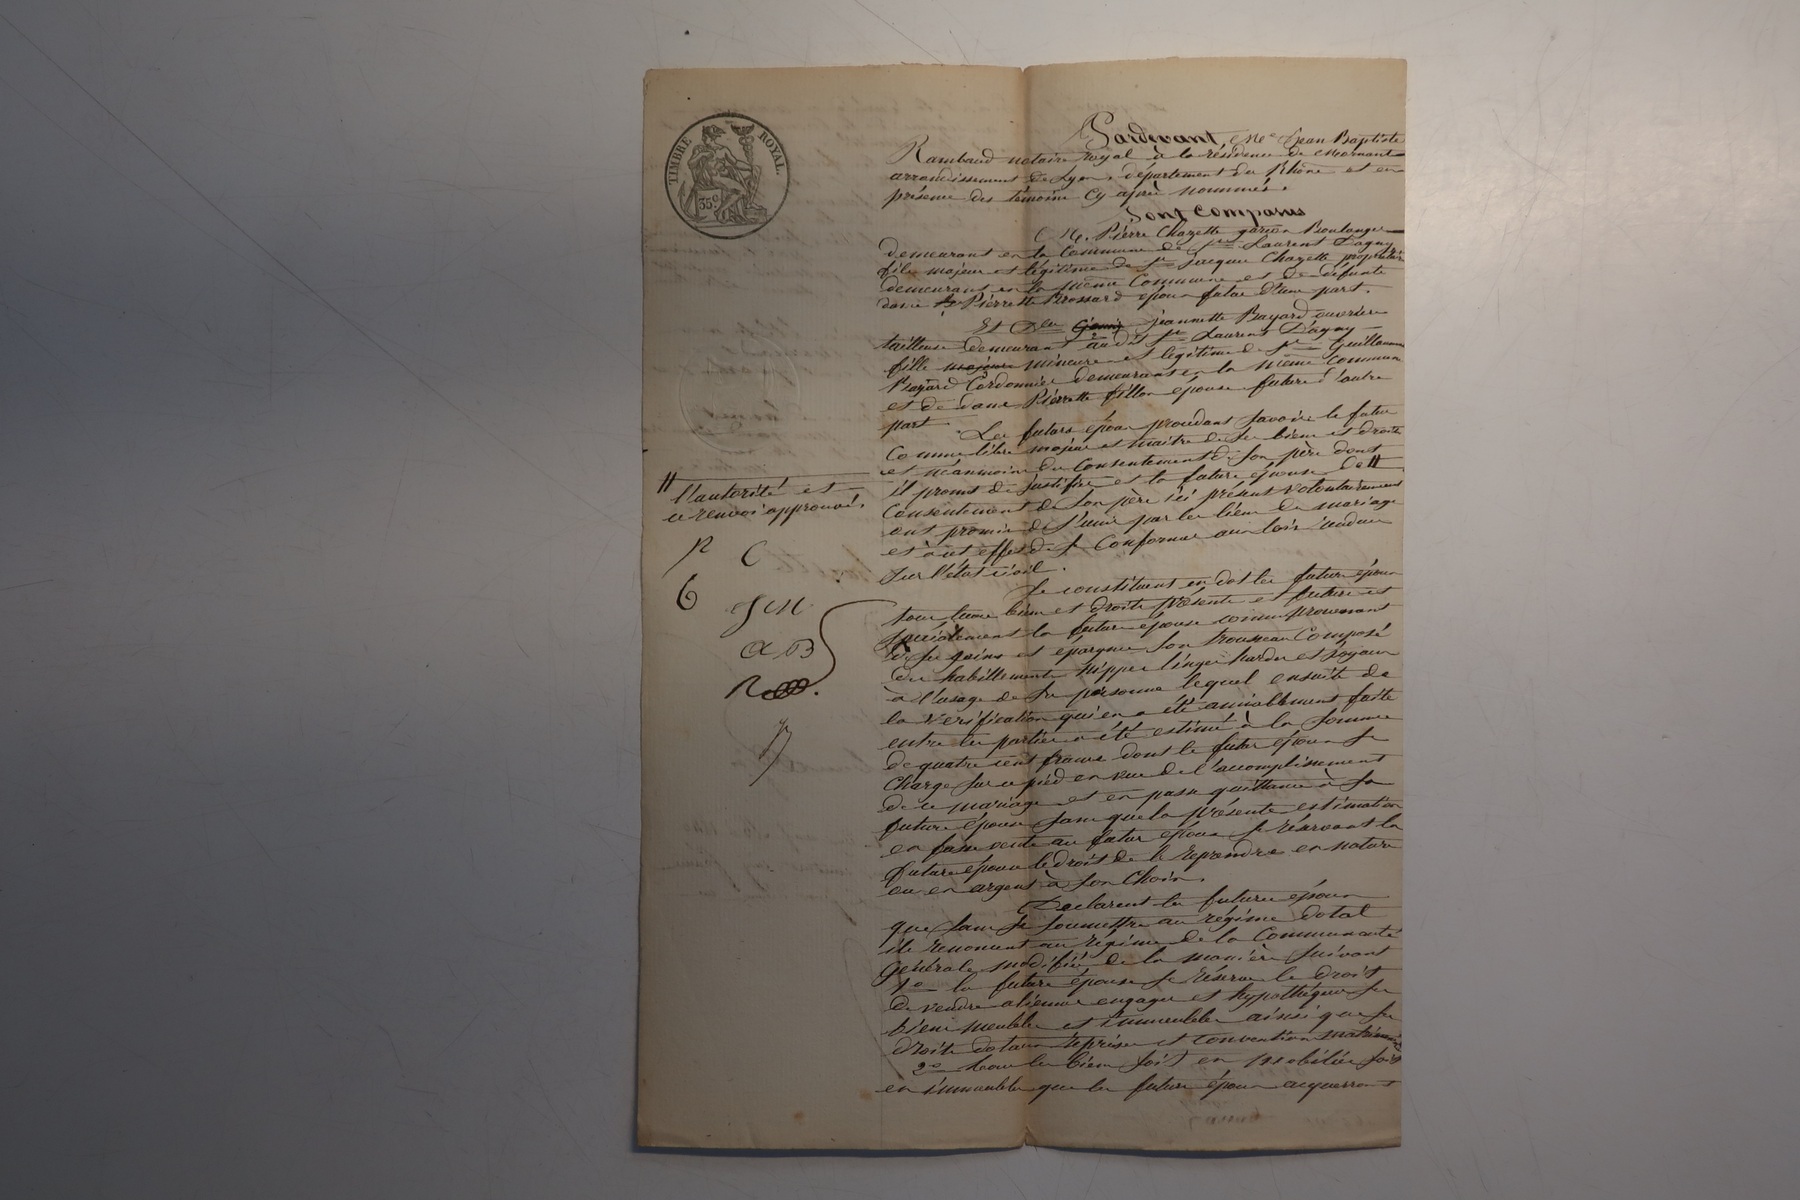 TIMBRE ROYAL.
35c.
Pardevant Me Jean Baptiste
Rambaud notaire royal à la résidence de Mornant
arrondissement de Lyon, département du Rhône et en
présence des témoins cy après nommés.
Sont Comparus
Pierre Chazette garçon Boulanger
demeurant en la Commune de St Laurent Dagny
fils majeur et légitime de Sr Jacques Chazette propriétaire
demeurant en la même Commune et de défunte
dame Pierrette Brossard époux futur d'une part.
Et Dlle Jeannette Bazard ouvrière
tailleuse demeurant audit St Laurent D'agny
fille majeure mineure et légitime de Sr Guillaume
Bazard Cordonnier demeurant en la même Commune
et de dame Pierrette fillon épouse future d'autre
part.
Les futurs époux procédant savoir le futur
Comme libre majeur et maitre de ses biens et droits
et néanmoins du Consentement de son père dont
il promet de justifier et la future épouse de #
Consentement de son père ici présent volontairement
ont promis de s'unir par les liens du mariage
et à cet effet de se Conformer aux lois rendues
sur l'état civil.
# l'autorité et
ce renvoi approuvé.
P C
6
JM
A B
R
Se constituent en dot les futurs époux
tous leurs biens et droits présents et futurs et
spécialement la future épouse comme provenant
de ses gains et épargnes son trousseau Composé
des habillements nippes linges hardes et joyaux
à l'usage de sa personne lequel ensuite de
la vérification qui en a été amiablement faite
entre les parties a été estimé à la somme
de quatre cent francs dont le futur époux se
Charge sur ce pied en vue de l'accomplissement
de ce mariage et en passe quittance à sa
future épouse sans que la présente estimation
en fasse vente au futur époux se réservant la
future épouse le droit de le reprendre en nature
ou en argent à son Choix.
Déclarent les futurs époux
que sans se soumettre au régime dotal
ils renoncent au régime de la Communauté
générale modifié de la manière suivant
1o la future épouse se réserve le droit
de vendre aliéner engager et hypothéquer ses
biens meubles et immeubles ainsi que ses
droits dotaux reprises et convention
2o tous les biens soit en mobilier soit
en immeubles que les futurs époux acquerront